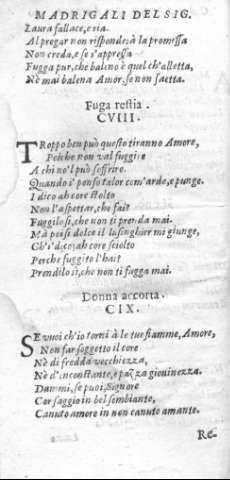 MADRIGALI DEL SIG.
Laura fallace, e ria.
Al pregar non risponde à la promessa
Non creda, e se s'appressa
Fugga pur, che baleno è quel ch'alletta,
Nè mai balena Amor, se non saetta.
Fuga restia.
CVIII.
TRoppo ben può questo tiranno Amore,
Poiche non val fuggire
A chi no'l può soffrire.
Quando i' penso talor com'arde, e punge.
I dico ah core stolto
Non l'aspettar, che fai?
Fuggilo sì, che non ti prenda mai.
Mà poi sì dolce il lusinghier mi giunge,
Ch'i' dico; ah core sciolto
Perche fuggito l'hai?
Prendilo sì, che non ti fugga mai.
Donna accorta.
CIX.
SE vuoi ch'io torni à le tue fiamme, Amore,
Non far soggetto il core
Nè di fredda vecchiezza,
Nè d'inconstante, e pazza giovinezza.
Dammi, se puoi, Signore
Cor saggio in bel sembiante,
Canuto amore in non canuto amante.
Re-